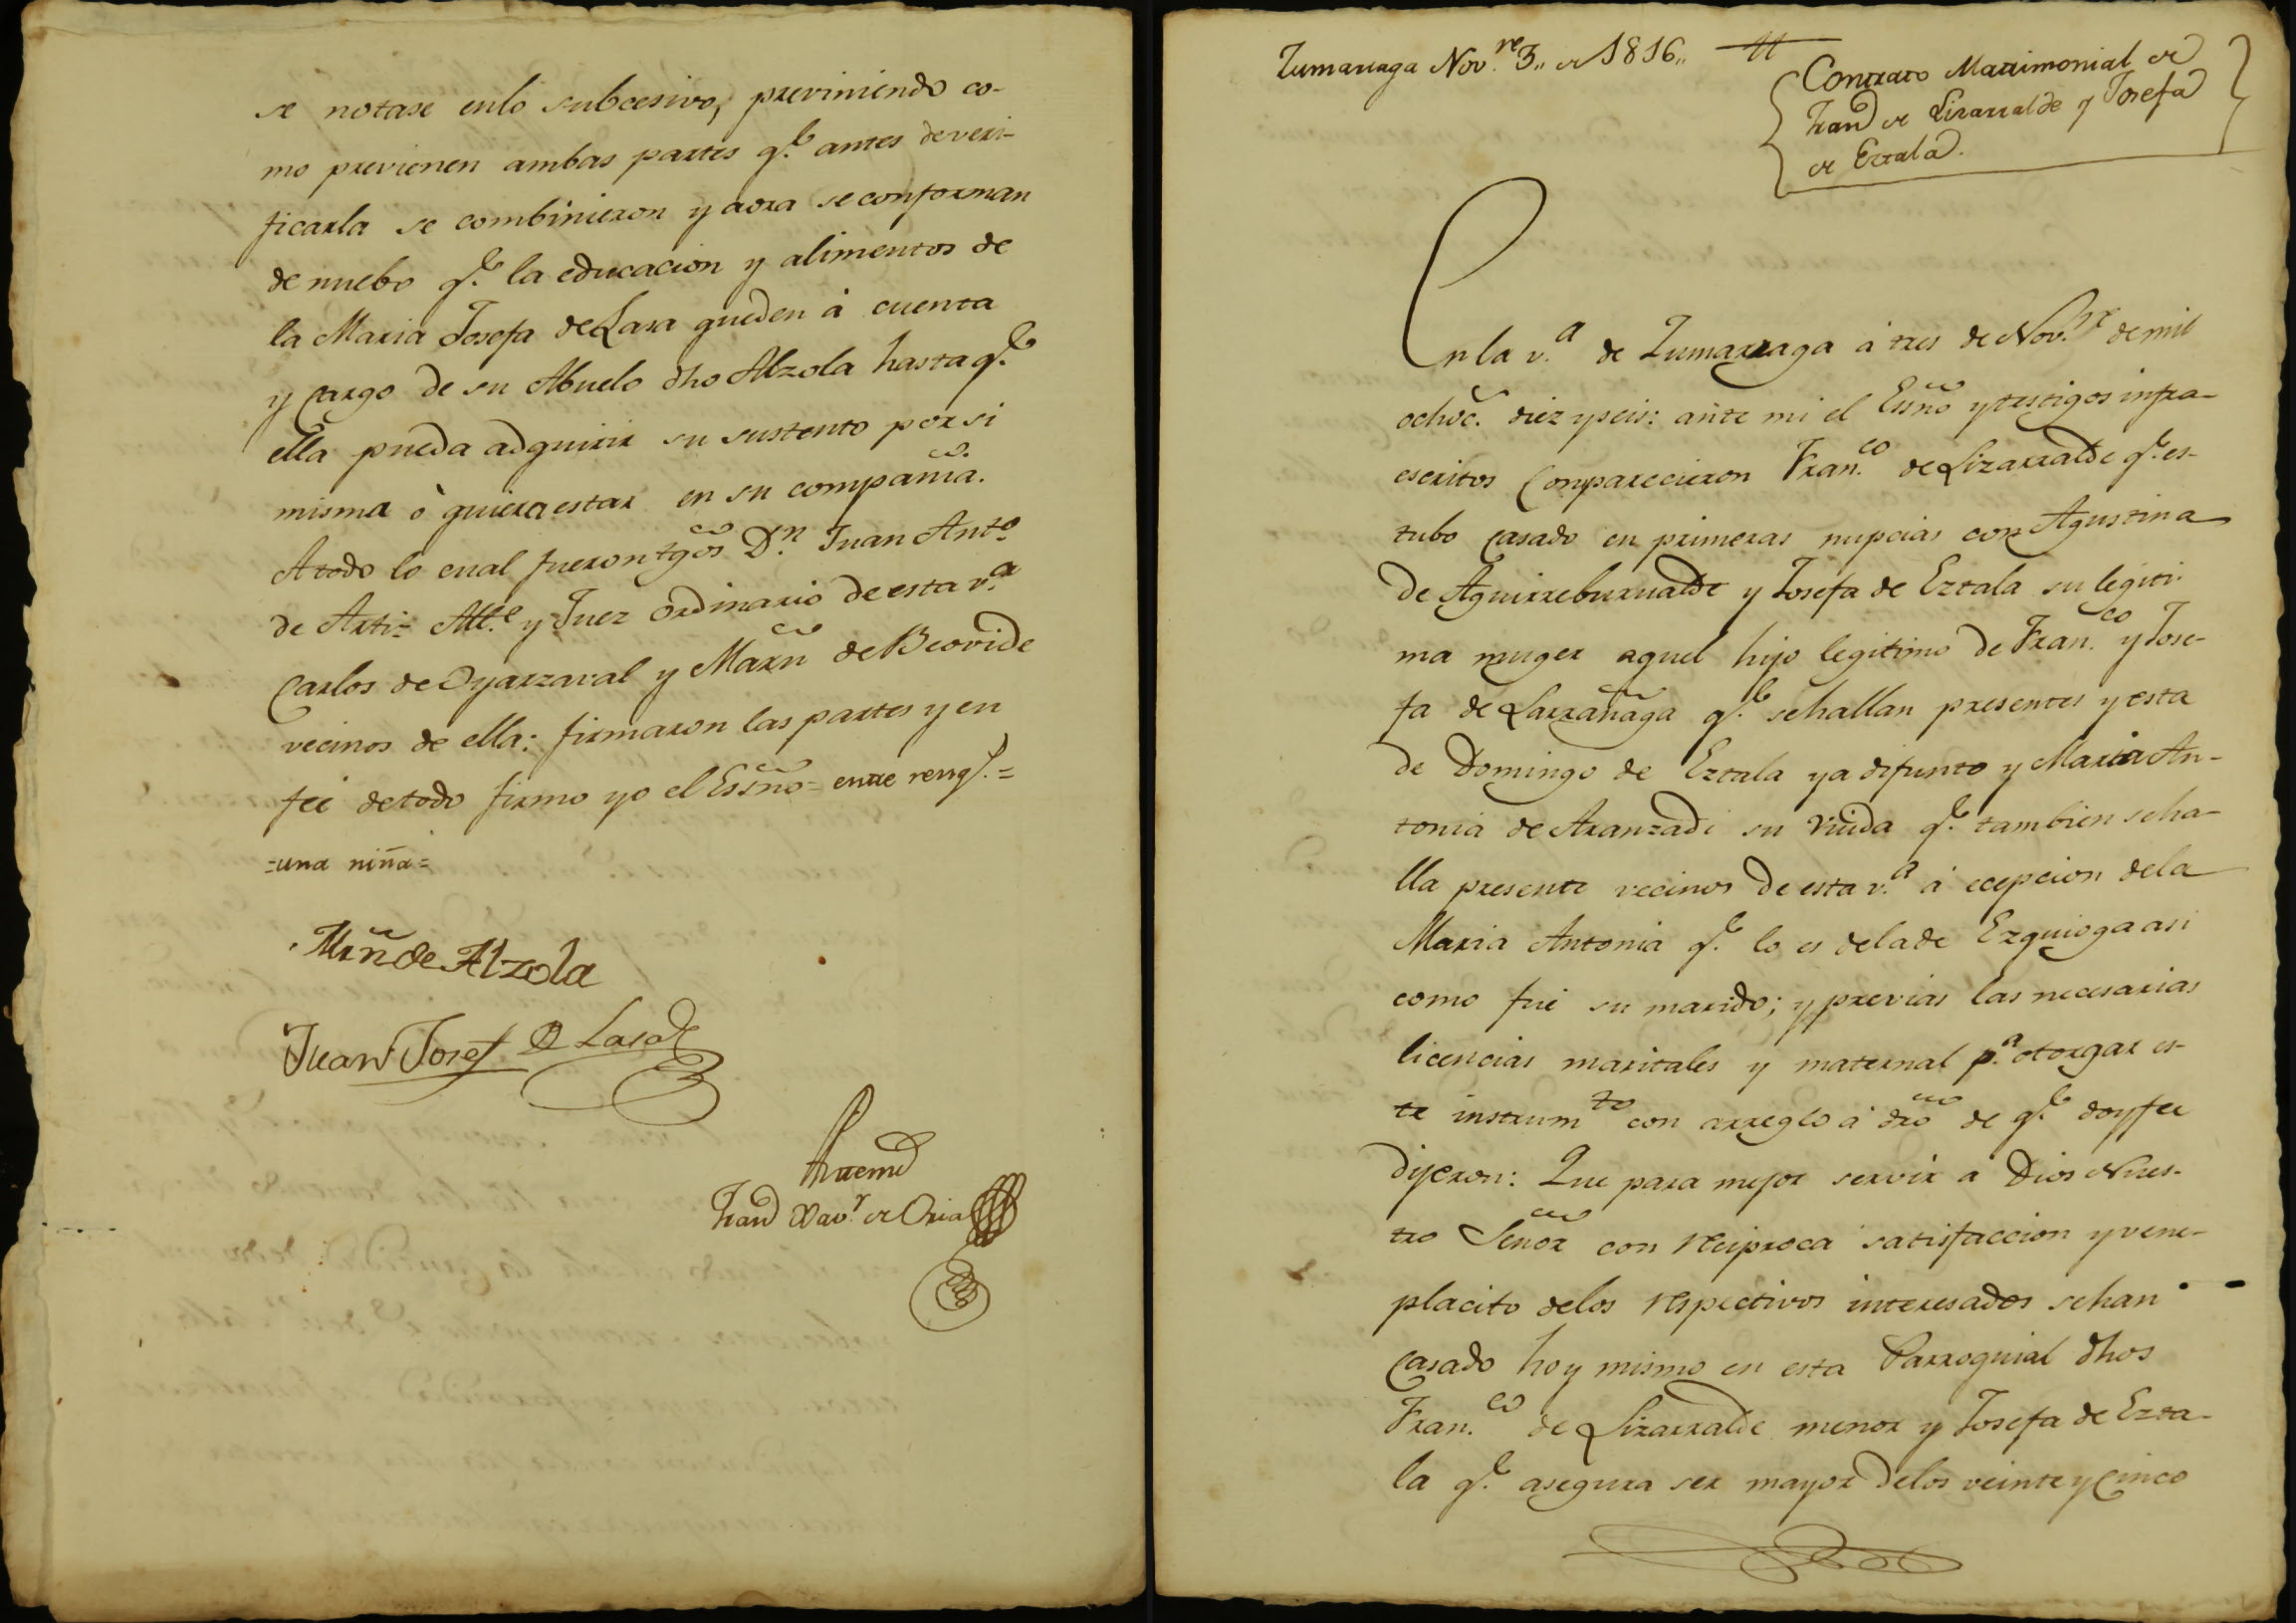 se notase en lo subcesivo, previniendo co-
mo previenen ambas partes q.e antes de veri-
ficarla se combinieron y aora se conforman
de nuebo q.e la educacion y alimentos de
la Maria Josefa de Lasa queden à cuenta
y cargo de su Abuelo dho Alzola hasta q.e
ella pueda adquirir su sustento por si
misma ò quiera estar en su compañia.
A todo lo cual fueron tgõs D.n Juan Ant.o
de Arti- Alc.e y Juez Ordinario de esta v.a
Carlos de Oyarzaval y Marñ de Beovide
vecinos de ella: firmaron las partes y en
fee de todo firmo yo el Essño = entre reng.s =
= una niña =
Mrñ de Alzola
Juan Josef de Lasa
Antemi
Fran.co Xav.r de Oria
Zumarraga Nov.re 3,, de 1816,,
Contrato Matrimonial de
Fran.co de Lizarralde y Josefa
de Eztala.
En la v.a de Zumarraga á tres de Nov.re de mil
ochoc. diez y seis: ante mi el Essño y testigos infra-
escritos Comparecieron Fran.co de Lizarralde q.e es-
tubo casado en primeras nupcias con Agustina
de Aguirreburualde y Josefa de Eztala su legiti-
ma muger aquel hijo legitimo de Fran.co y Jose-
fa de Larrañaga q.e se hallan presentes y esta
de Domingo de Eztala ya difunto y Maria An-
tonia de Aranzadi su Viuda q.e tambien se ha-
lla presente vecinos de esta v.a á ecepcion de la
Maria Antonia q.e lo es de la de Ezquioga asi
como fué su marido; y previas las necesarias
licencias maritales y maternal p.a otorgar es-
te instrum.to con arreglo á dro de q.e doy fee
dijeron: Que para mejor servir á Dios Nues-
tro Señor con reciproca satisfaccion y vene-
placito de los respectivos interesados se han
casado hoy mismo en esta Parroquial dhos
Fran.co de Lizarralde menor y Josefa de Ezta-
la q.e asegura ser mayor de los veinte y cinco